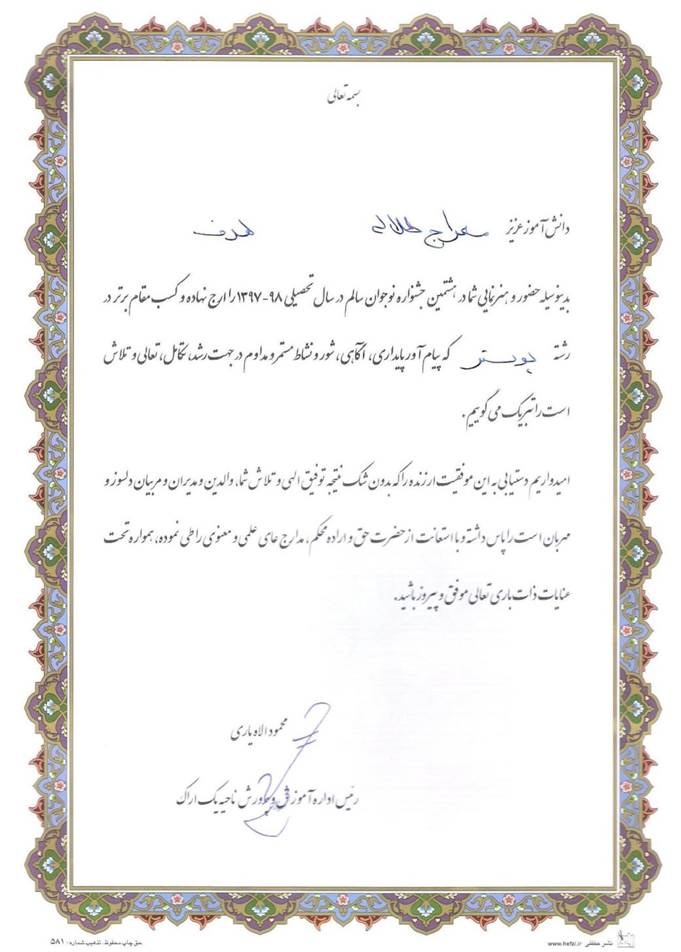 بسمه تعالی
دانش آموز عزیز معراج طلاله هدف
بدینوسیله حضور و هنرنمایی شما در هشتمین جشنواره نوجوان سالم در سال تحصیلی ۹۸-۱۳۹۷ را ارج نهاده و کسب مقام برتر در
رشته پوستر که پیام آور پایداری، آگاهی، شور و نشاط مستمر و مداوم در جهت رشد، تکامل، تعالی و تلاش
است را تبریک می گوییم.
امیدواریم دستیابی به این موفقیت ارزنده را که بدون شک نتیجه توفیق الهی و تلاش شما، والدین و مدیران و مربیان دلسوز و
مهربان است را پاس داشته و با استعانت از حضرت حق و اراده محکم، مدارج عای علمی و معنوی را طی نموده، همواره تحت
عنایات ذات باری تعالی موفق و پیروز باشید.
محمود الاه یاری
رئیس اداره آموزش و پرورش ناحیه یک اراک
نشر حفظی www.hefzi.ir
حق چاپ محفوظ. تذهیب شماره: ۵۸۱